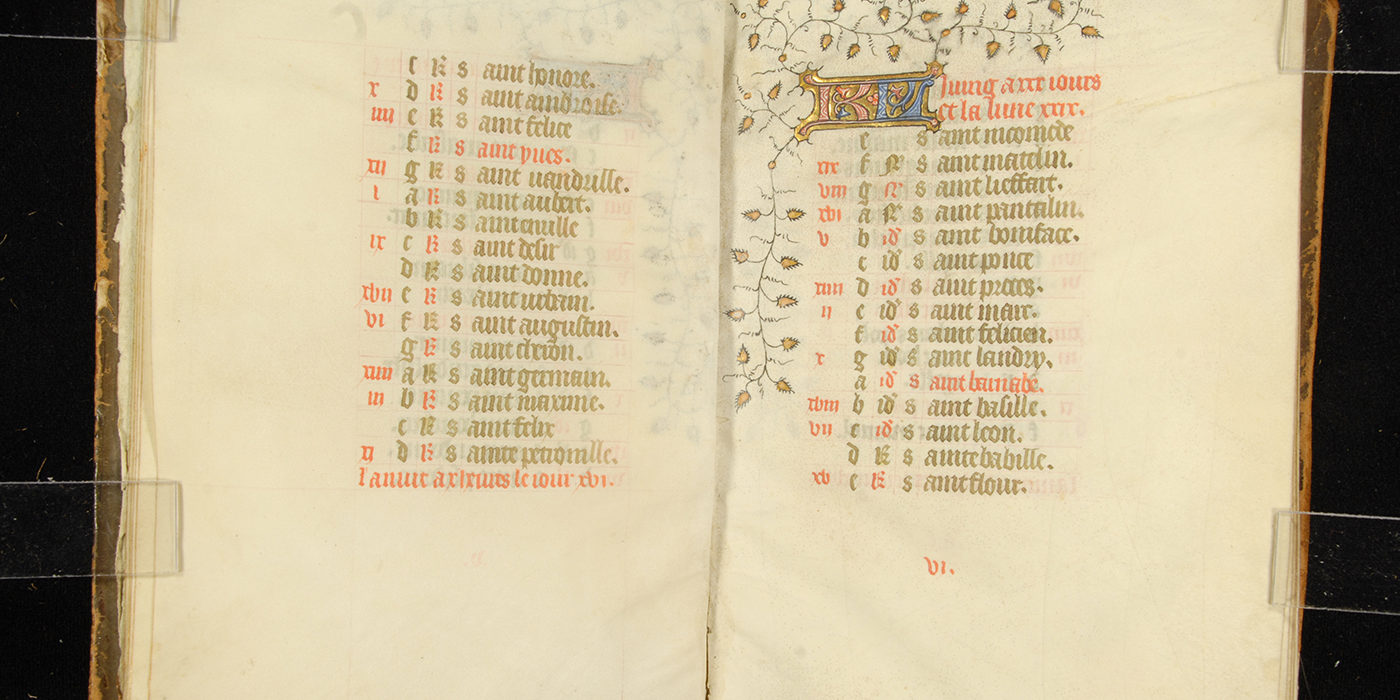 c K S aint honore.
x d K S aint ambroise.
iiii e K S aint felice
f K S aint yues.
xii g K S aint uandrille.
i a K S aint aubert.
b K S aint emille
ix c K S aint desir
d K S aint donne.
xvii e K S aint urbain.
vi f K S aint augustin.
g K S aint
xiiii a K S aint germain.
iii b K S aint maxime.
c K S aint felix
xi d K S ainte petronille.
La nuit a heures le iour xvi.
KL Juing a xxx iours
et la lune xxix.
e S aint nicomede
xix f N S aint matelin.
viii g N S aint lieffart.
xvi a N S aint pantalin.
v b id S aint boniface.
c id S aint ponce
xiii d id S aint
ii e id S aint marc.
f id S aint felicien.
x g id S aint landry.
a id S aint barnabe.
xviii b id S aint basille.
vii c id S aint leon.
d K S ainte babille.
xv e K S aint flour.
vi.